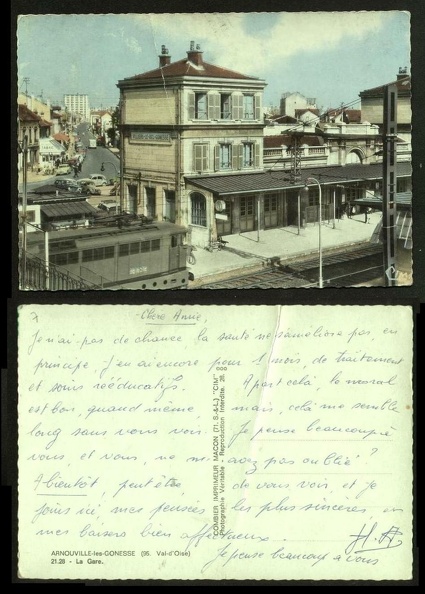 Cim
Chère Annie,
Je n'ai pas de chance, la santé ne s'améliore pas, en
principe, j'en ai encore pour 1 mois, de traitement
et soins rééducatifs. A part cela, le moral
est bon, quand même, mais, celà me semble
long sans vous voir. Je pense beaucoup à
vous et vous, ne m'avez pas oublié ?
A bientôt, peut être, de vous voir, et je
joins ici mes pensées les plus sincères, en
mes baisers bien affectueux.
Je pense beaucoup à vous
COMBIER IMPRIMEUR MACON (71. S.-&-L.) "CIM"
Photographie Véritable - Reproduction Interdite.
ARNOUVILLE-les-GONESSE (95. Val-d'Oise)
21.28 - La Gare.